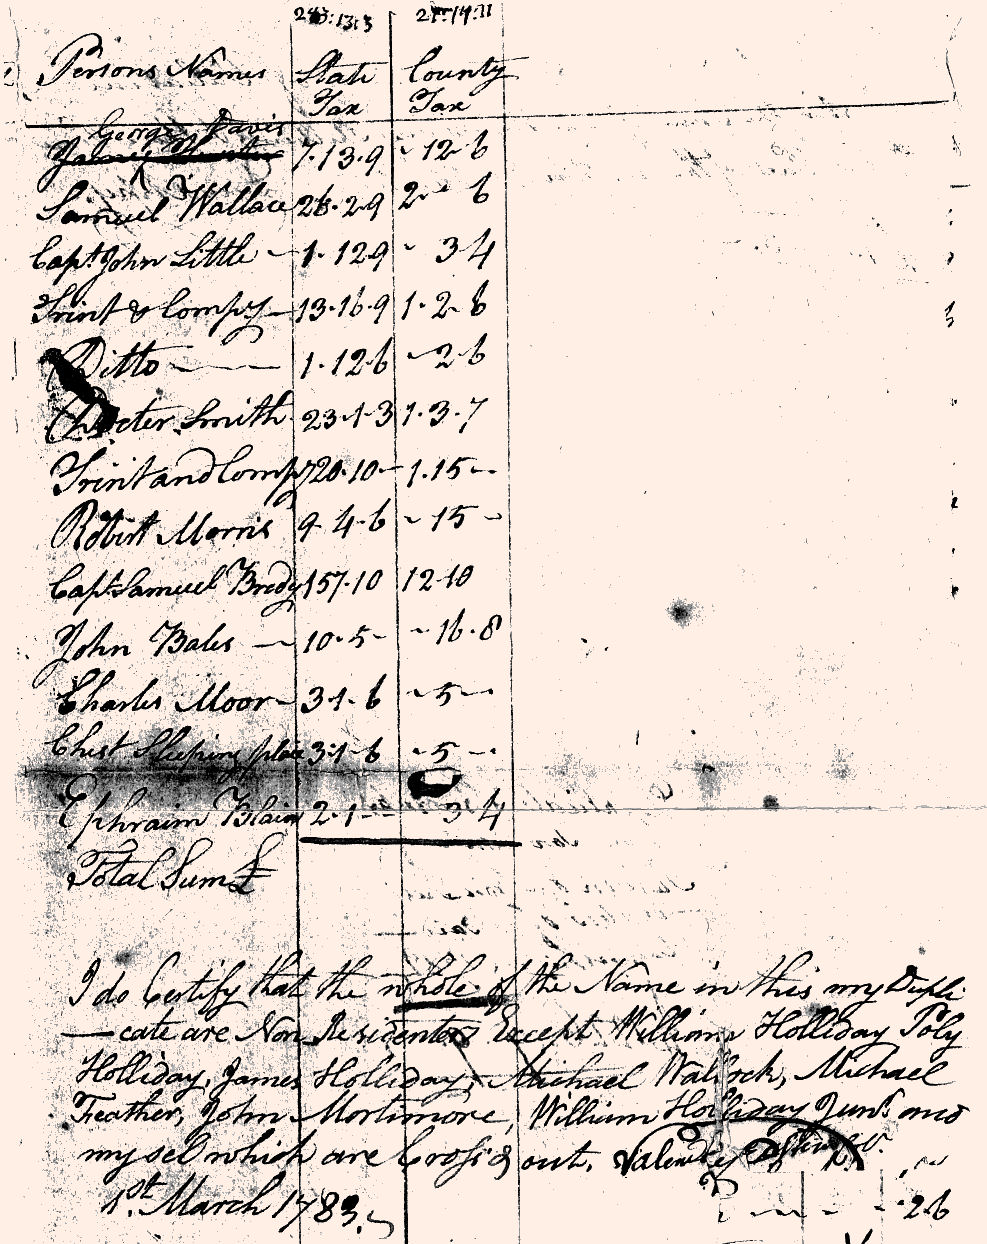 Persons Names State County
Tax Tax
George Davis
7.13.9 - 12-6
Samuel Wallace 26.2.9 2 - 6
Capt. John Little - 1.12.9 - 3.4
Trint & Compy - 13.16.9 1.2.6
Ditto 1.12.6 - 2.6
Docter Smith 23.1.3 1.3.7
Trint and Compy 20.10 - 1.15 -
Robirt Morris 9.4.6 - 15 -
Capt Samuel Brady 157.10 12.10
John Bales - 10.5 - - 16.8
Charles Moor - 3.1.6 - 5 -
Chest Sleeping place 3.1.6 - 5 -
Ephraim Blain 2.1 - - 3 4
Total Sum £
I do Certify that the whole of the Name in this my Dupli
-cate are Non Residenters Except William Holliday Poly
Holliday, James Holliday, Michael Wallock, Michael
Feather, John Mortimore, William Holliday Junr and
my self which are Cross'd out.
1st. March 1783.
2.6